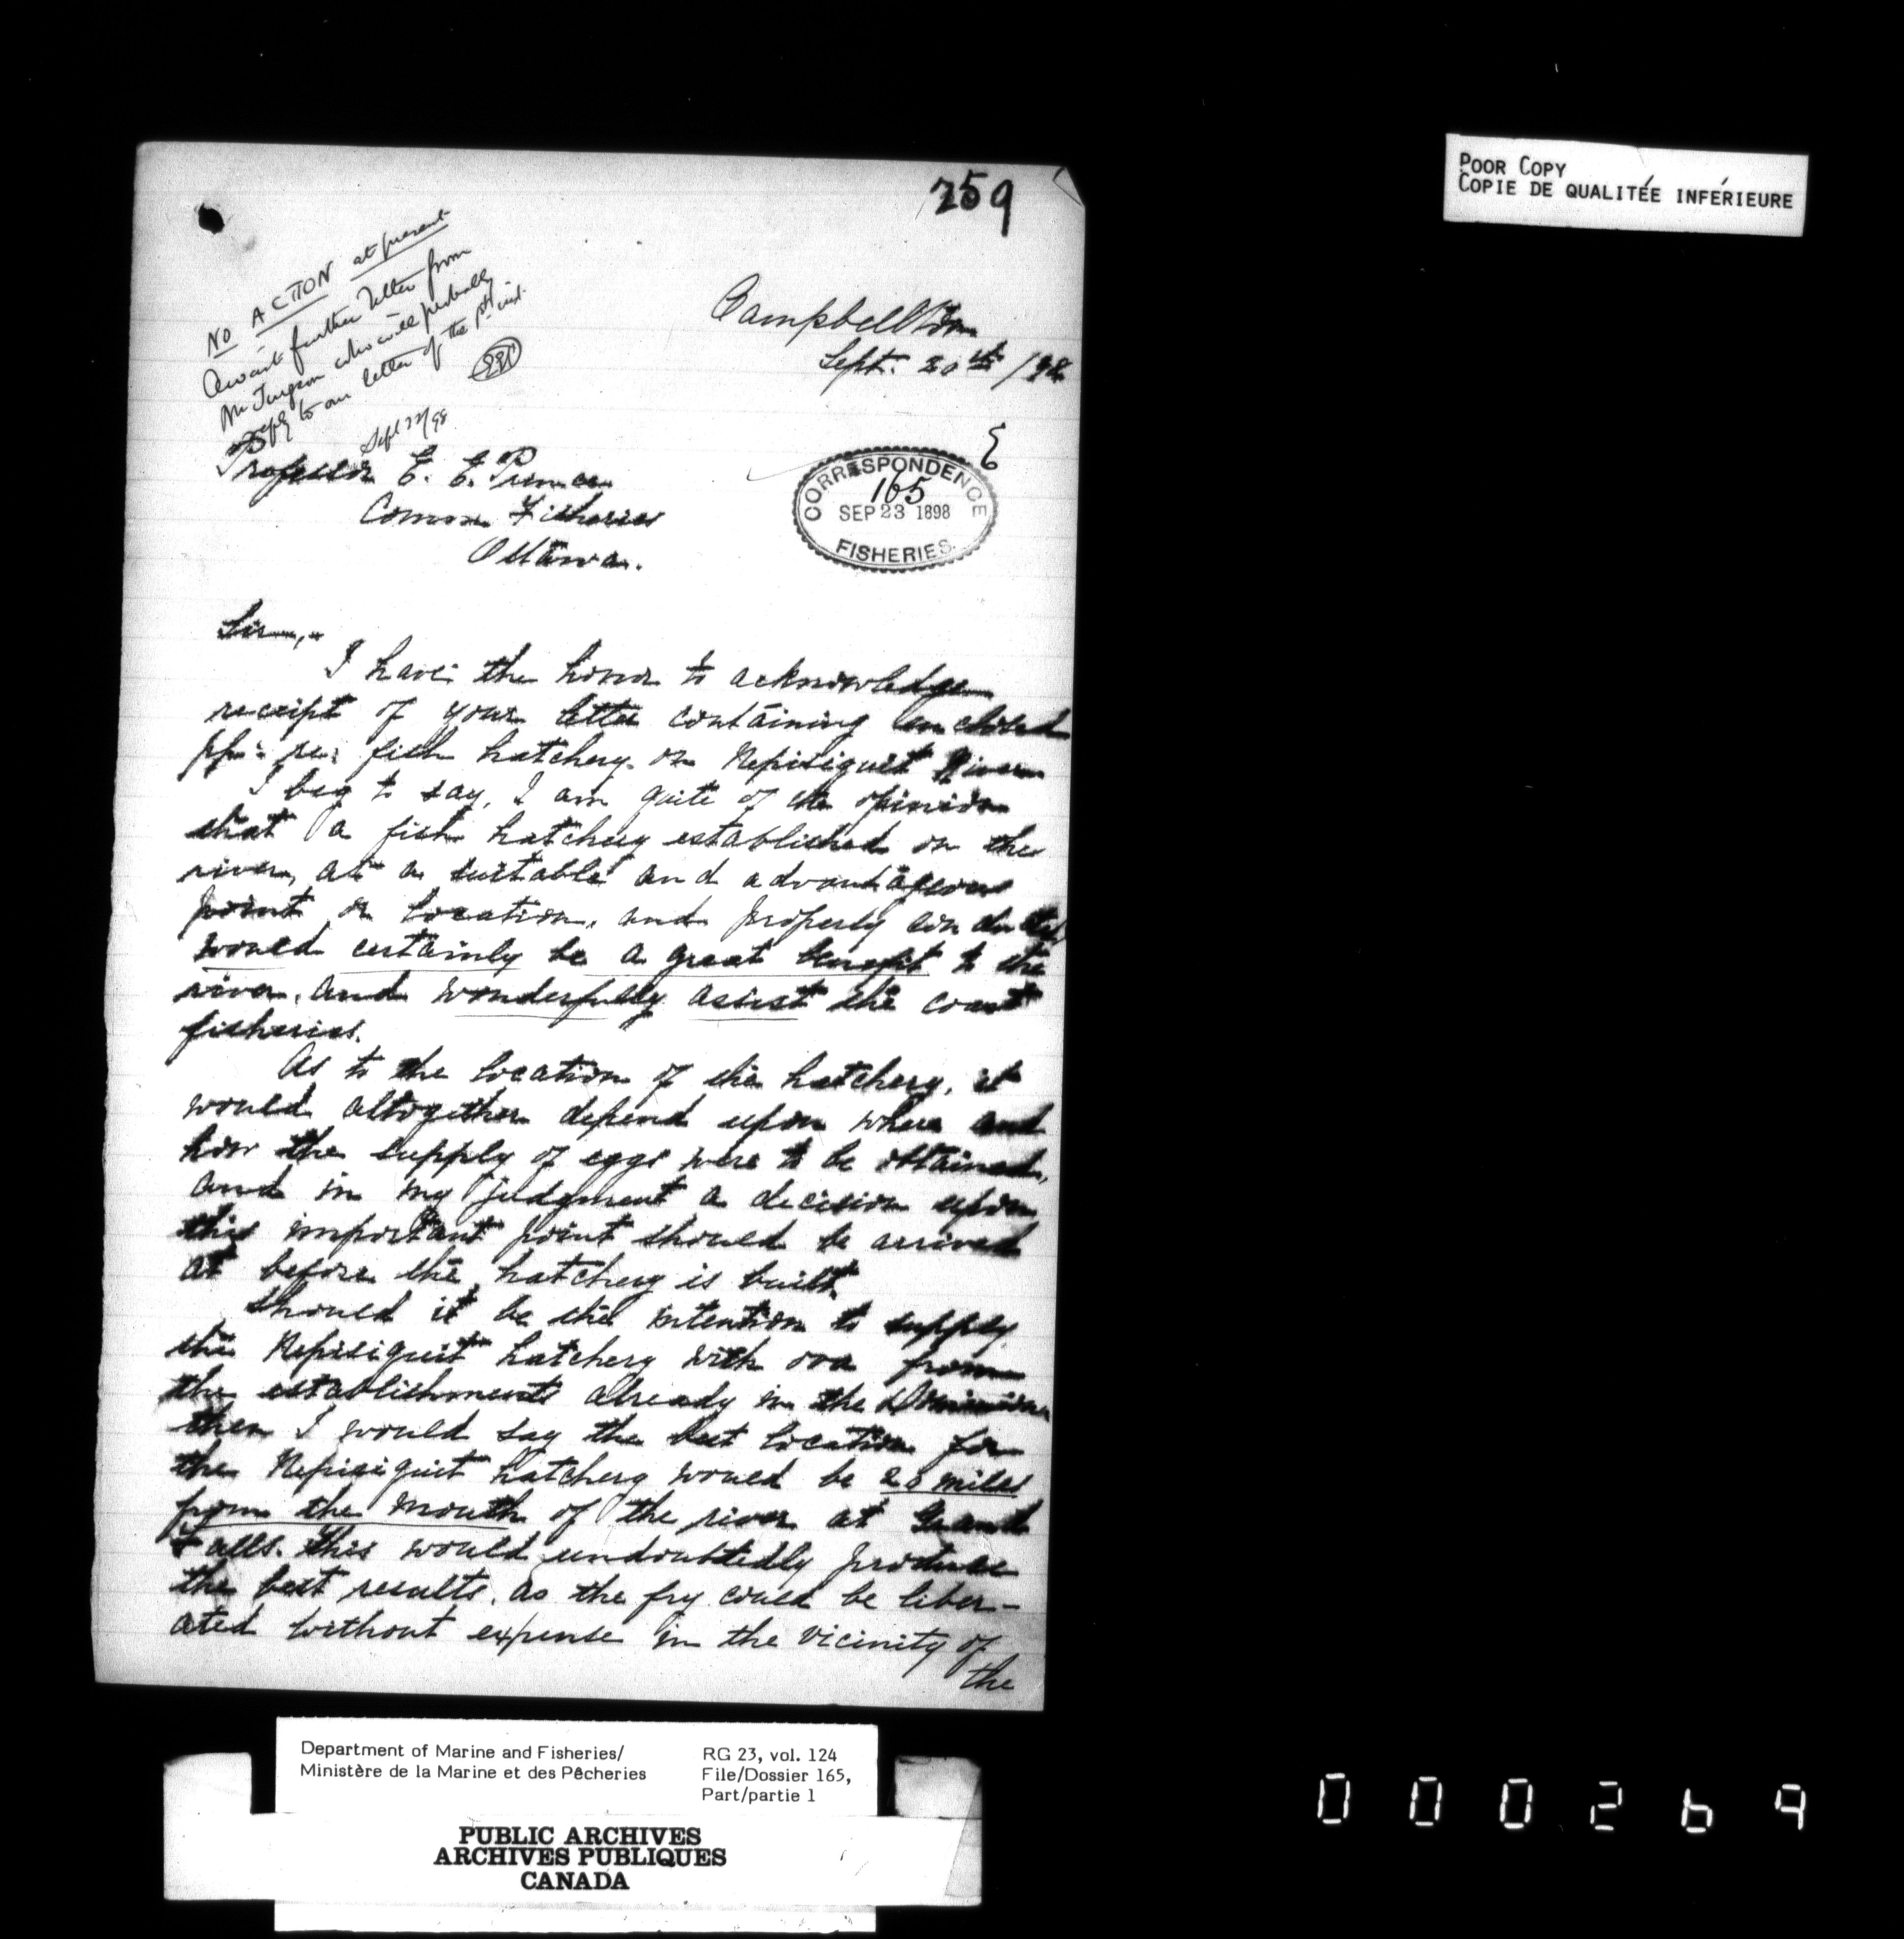 259
POOR COPY
COPIE DE QUALITÉE INFÉRIEURE
NO ACTION at present
Await further letter from
Mr Turgeon who will probably
reply to our letter of the 1st inst.
EEP
Sept 22/98
Campbellton
Sept. 20th /98
Professor E. E. Prince
Commr Fisheries
Ottawa.
CORRESPONDENCE
165
SEP 23 1898
FISHERIES
Sir,,
I have the honor to acknowledge
receipt of your letter containing enclosed
re: fish hatchery on Nepisiguit River
I beg to say, I am quite of the opinion
that a fish hatchery established on the
river, at a suitable and advantageous
point or location, and properly conducted
would certainly be a great benefit to the
river, and wonderfully assist the coast
fisheries.
As to the location of the hatchery, it
would altogether depend upon where and
how the supply of eggs were to be obtained,
and in my judgment a decision upon
this important point should be arrived
at before the hatchery is built.
Should it be the intention to supply
the Nepisiguit hatchery with ova from
the establishments already in the Dominion
then I would say the best location for
the Nepisiguit hatchery would be 20 miles
from the mouth of the river at Grand
Falls. This would undoubtedly produce
the best results, as the fry could be liber-
ated without expense in the vicinity of
the
Department of Marine and Fisheries/
Ministère de la Marine et des Pêcheries
RG 23, vol. 124
File/Dossier 165,
Part/partie 1
PUBLIC ARCHIVES
ARCHIVES PUBLIQUES
CANADA
000269